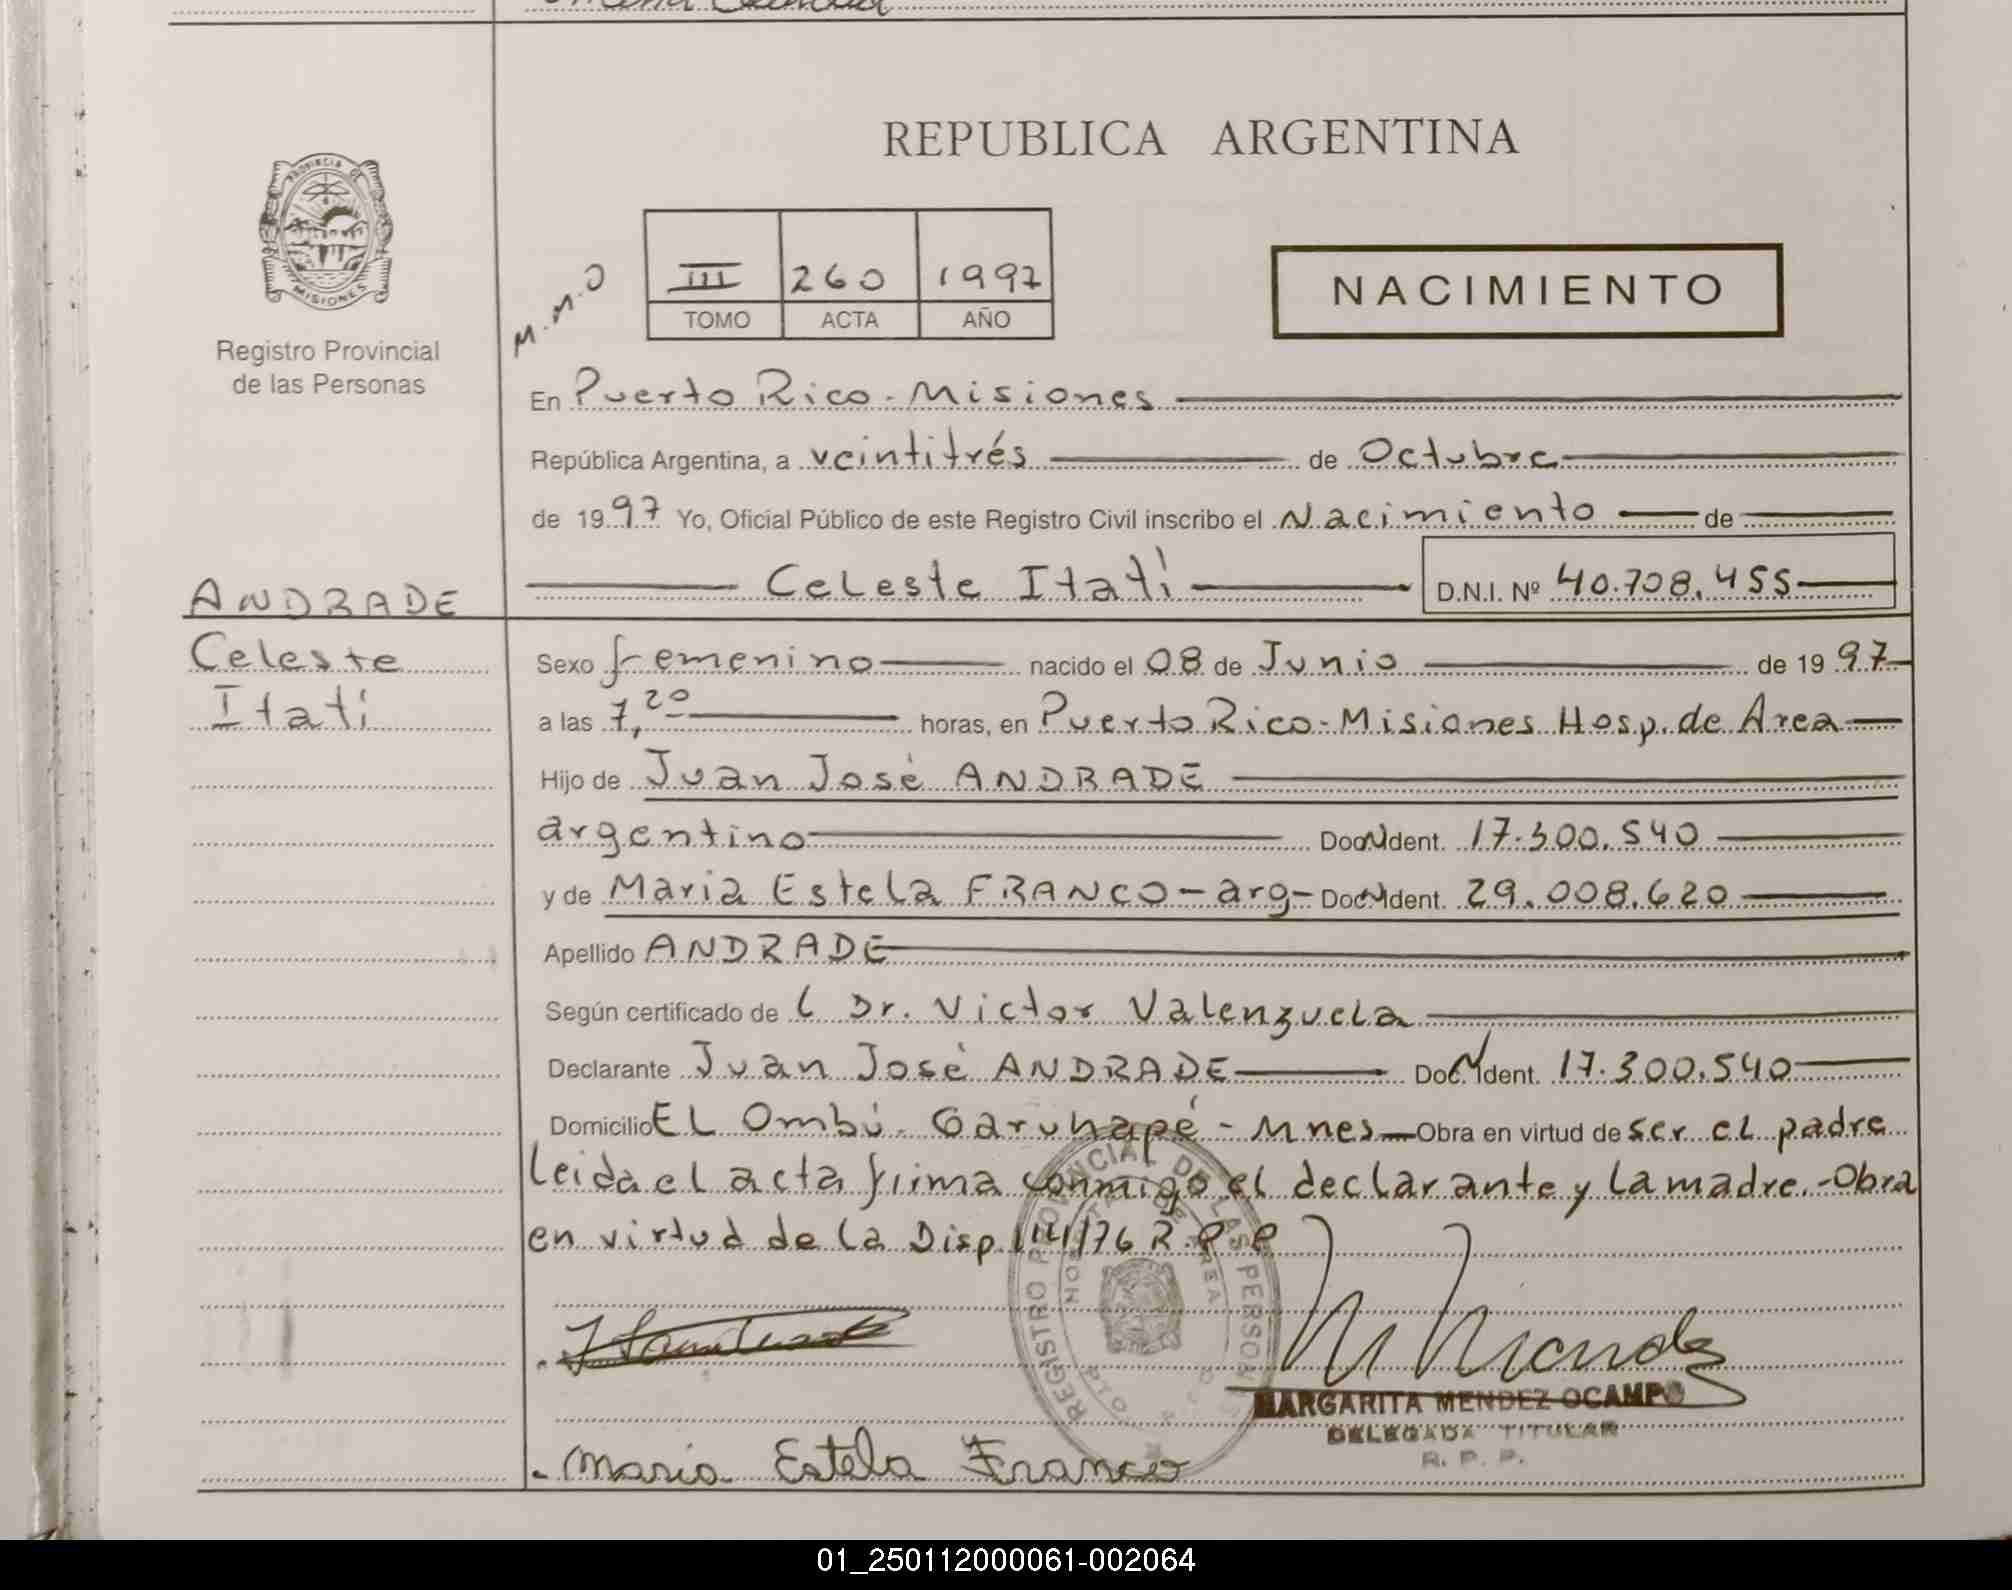 REPUBLICA ARGENTINA
PROVINCIA DE
MISIONES
Registro Provincial
de las Personas
M.M.O
III 260 1997
TOMO ACTA AÑO
NACIMIENTO
En Puerto Rico - Misiones
República Argentina, a veintitrés de Octubre
de 1997 Yo, Oficial Público de este Registro Civil inscribo el Nacimiento de
Celeste Itatí D.N.I. Nº 40.708.455
ANDRADE
Celeste
Itatí
Sexo femenino nacido el 08 de Junio de 1997
a las 7,20 horas, en Puerto Rico - Misiones Hosp. de Area
Hijo de Juan José ANDRADE
argentino Doc. Ident. 17.300.540
y de Maria Estela FRANCO - arg - Doc. Ident. 29.008.620
Apellido ANDRADE
Según certificado de l Dr. Victor Valenzuela
Declarante Juan José ANDRADE Doc. Ident. 17.300.540
Domicilio EL Ombú - Garuhapé - Mnes - Obra en virtud de ser el padre
Leida el acta firma conmigo el declarante y la madre. - Obra
en virtud de la Disp. 141/76 R.P.P
REGISTRO PROVINCIAL DE LAS PERSONAS
MARGARITA MENDEZ OCAMPO
DELEGADA TITULAR
R. P. P.
Maria Estela Franco
01_250112000061-002064